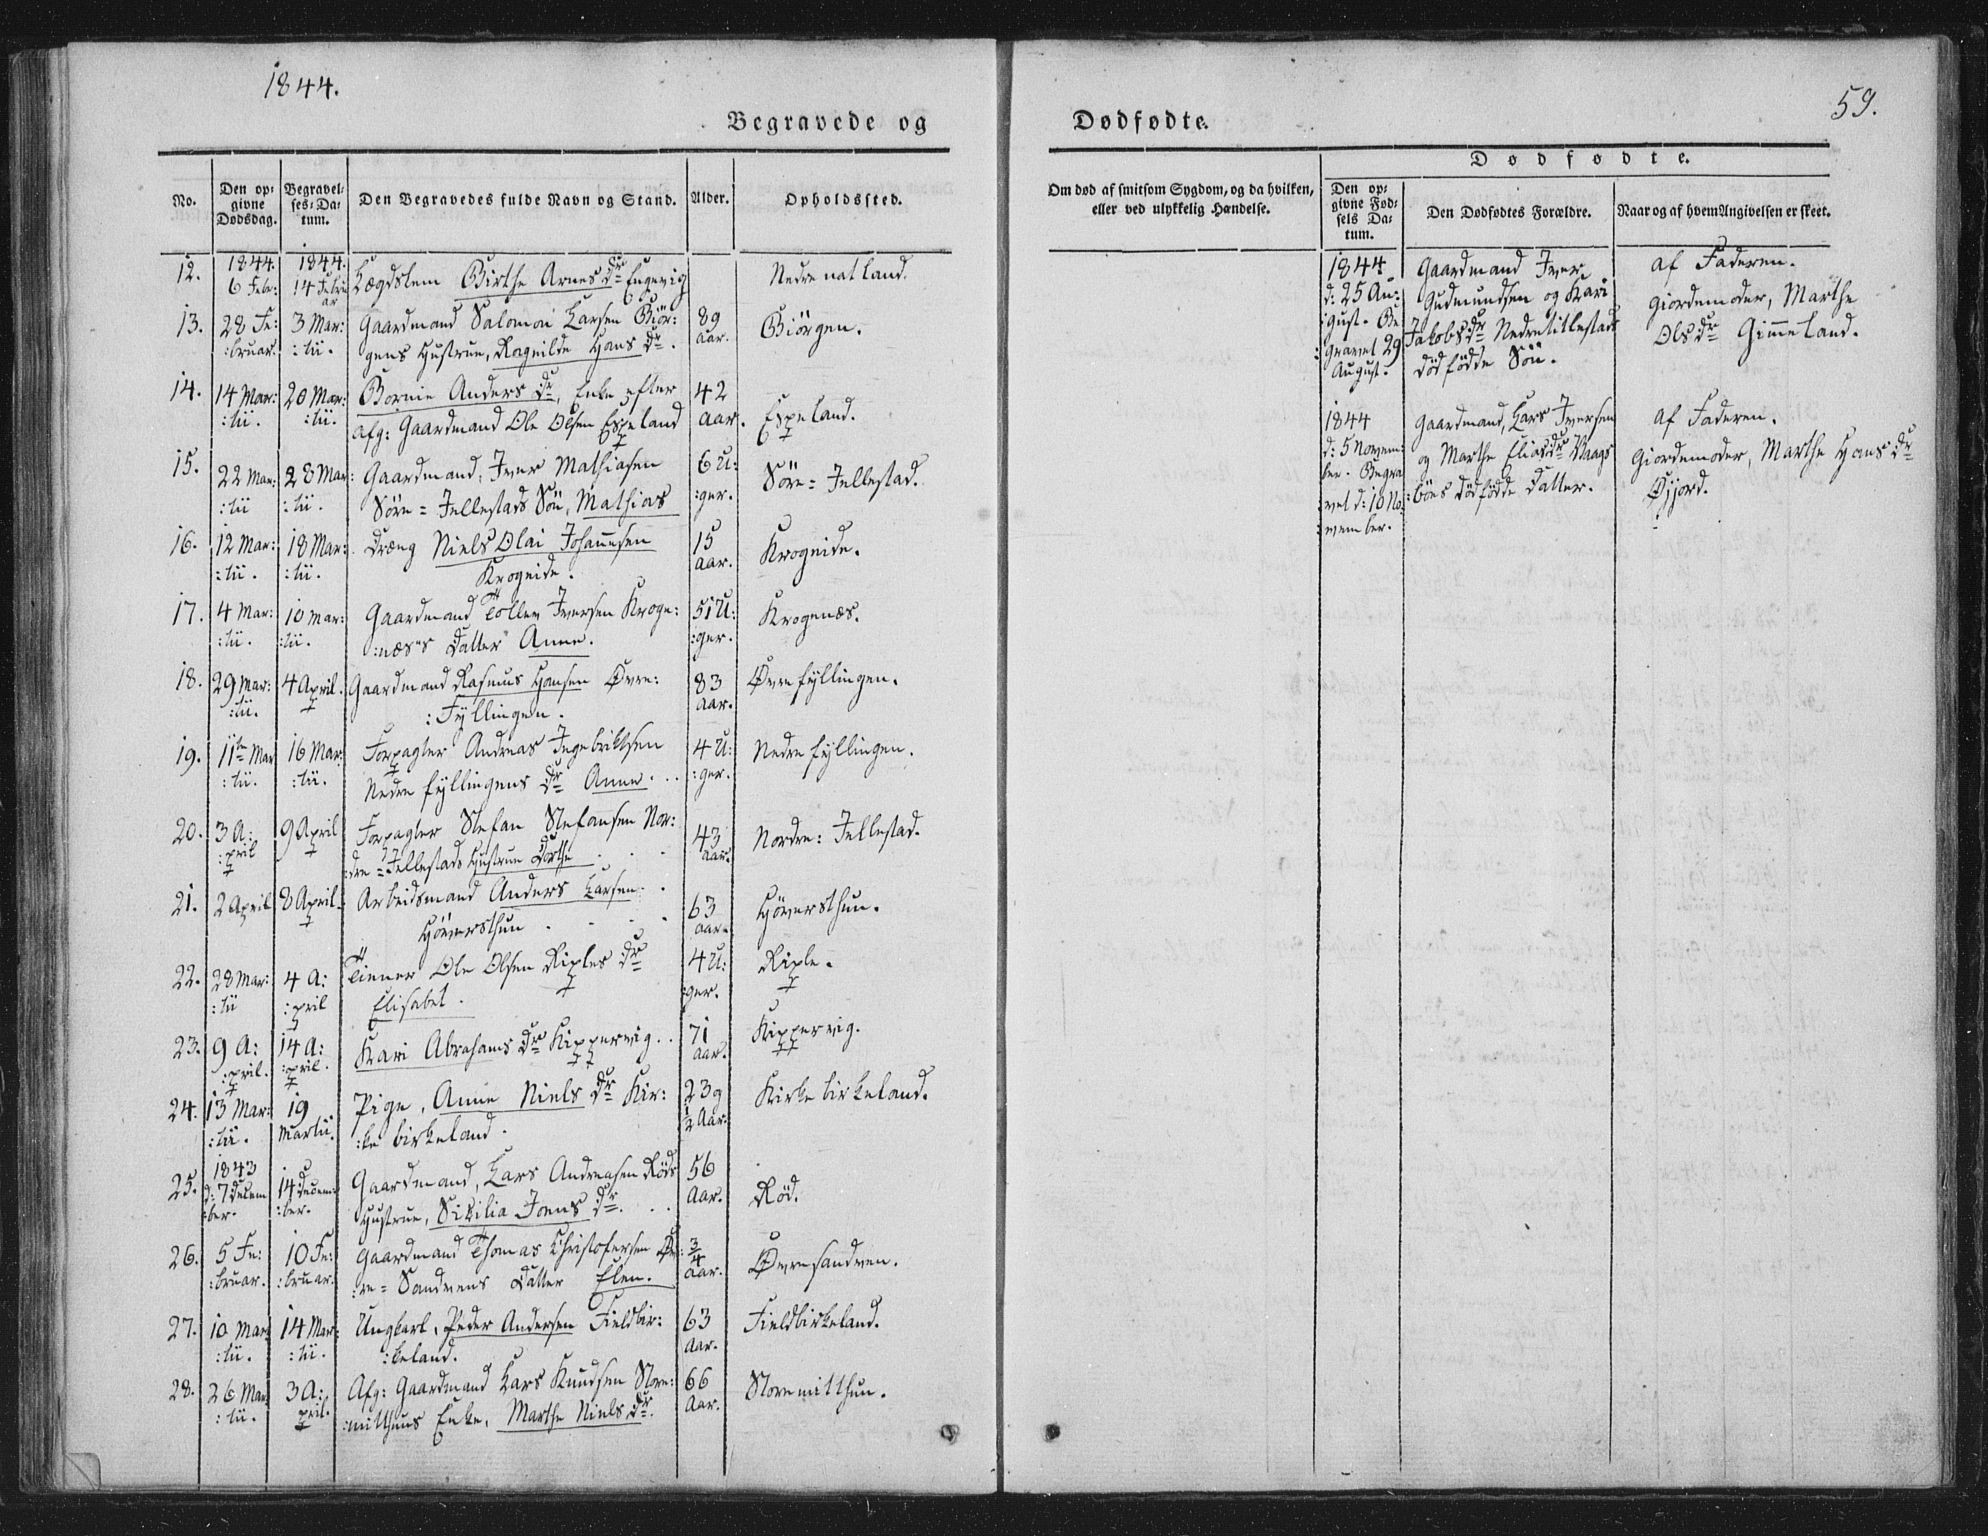 1844.
Begravede og
No.
Den op-
givne
Dødsdag.
Begravel-
ses-Da-
tum.
Den Begravedes fulde Navn og Stand.
Alder.
Opholdssted.
12.
1844.
6 Febr:
1844.
14 Febru
ar
Lægdslem Birthe Arnes Dr Engevig
Nedre natland.
13.
28 Fe:
:bruar.
3 Mar:
:tii.
Gaardmand Salomon Larsen Biör:
gens Hustrue, Ragnilde Hans Dr.
89
Aar.
Biörgen.
14.
14 Mar:
:tii.
20 Mar:
:tii.
Anders Dr, Enke efter
afg: Gaardmand Ole Olsen Espeland
42
Aar.
Espeland.
15.
22 Mar:
:tii
28 Mar:
:tii.
Gaardmand, Iver Mathiasen
Söre=Jellestads Sön, Mathias
6 U:
:ger.
Söre=Jellestad.
16.
12 Mar:
:tii.
18 Mar:
:tii.
Dræng Niels Olai Johannesen
Krogeide.
15
Aar.
Krogeide.
17.
4 Mar:
:tii.
10 Mar:
:tii.
Gaardmand Tollev Iversen Kroge:
:næs's Datter Anne.
51 U:
:ger.
Krogenæs.
18.
29 Mar:
:tii.
4 April.
Gaardmand Rasmus Hansen Øvre:
:Fyllingen.
83
Aar.
Øvre fyllingen.
19.
11te Mar
:tii.
16 Mar:
:tii.
Forpagter Andreas Ingebriktsen
Nedre fyllingens Dr Anne.
4 U:
:ger.
Nedre fyllingen.
20.
3 A:
:pril
9 April
Forpagter Stefan Stefansen Nor:
:dre=Jellestads Hustrue Dorthe
43
Aar.
Nordre: Jellestad.
21.
2 April
8 April.
Arbeidsmand Anders Larsen
Höversthun.
63
Aar.
Höversthun.
22.
28 Mar:
:tii
4 A:
:pril
Tiener Ole Olsen Riples Dr
Elisabet.
4 U:
:ger.
Riple.
23.
9 A:
:pril.
14 A:
:pril.
Kari Abrahams Dr Kippervig.
71
Aar.
Kippervig.
24.
13 Mar:
:tii.
19
Martii.
Pige, Anne Niels Dr Kir:
:ke birkeland.
½ Aar.
Kirke birkeland.
25.
1843
d: 7 Decem
:ber.
14 Decem:
:ber.
Gaardmand, Lars Andreasen Röds
Hustrue, Sisilia Joens Dr.
56
Aar.
Röd.
26.
5 Fe:
:bruar.
10 Fe:
:bruar.
Gaardmand Thomas Christofersen Øv:
:re=Sandvens Datter Elen.
3/4
Aar.
Øvre sandven.
27.
10 Mar
:tii.
14 Mar:
:tii.
Ungkarl, Peder Andersen Fieldbir:
:keland.
63
Aar.
Fieldbirkeland.
28.
26 Mar
:tii.
3 A:
pril.
Afg: Gaardmand Lars Knudsen Store:
:mitthuns Enke, Marthe Niels Dr.
66
Aar.
Store mitthun.
59.
Dødfødte.
Dødfødte.
Om død af smitsom Sygdom, og da hvilken,
eller ved ulykkelig Hændelse.
Den op-
givne Fød-
sels Da-
tum.
Den Dødfødtes Forældre.
Naar og af hvem Angivelsen er skeet.
1844
d: 25 Au:
:gust. Be
gravet 29
August.
Gaardmand Iver
Gudmundsen og Kari
Jakobs Dr Nedretitlestads
dödfödde Sön.
af Faderen.
Giordemoder, Marthe
Ols Dr Gimeland.
1844
d: 5 Novem:
ber. Begra
vet d: 10 No
vember.
Gaardmand, Lars Iversen
og Marthe Elias Dr Vaags
:böes dödfödde Datter.
af Faderen.
Giordemoder, Marthe Hans Dr
Øyjord.